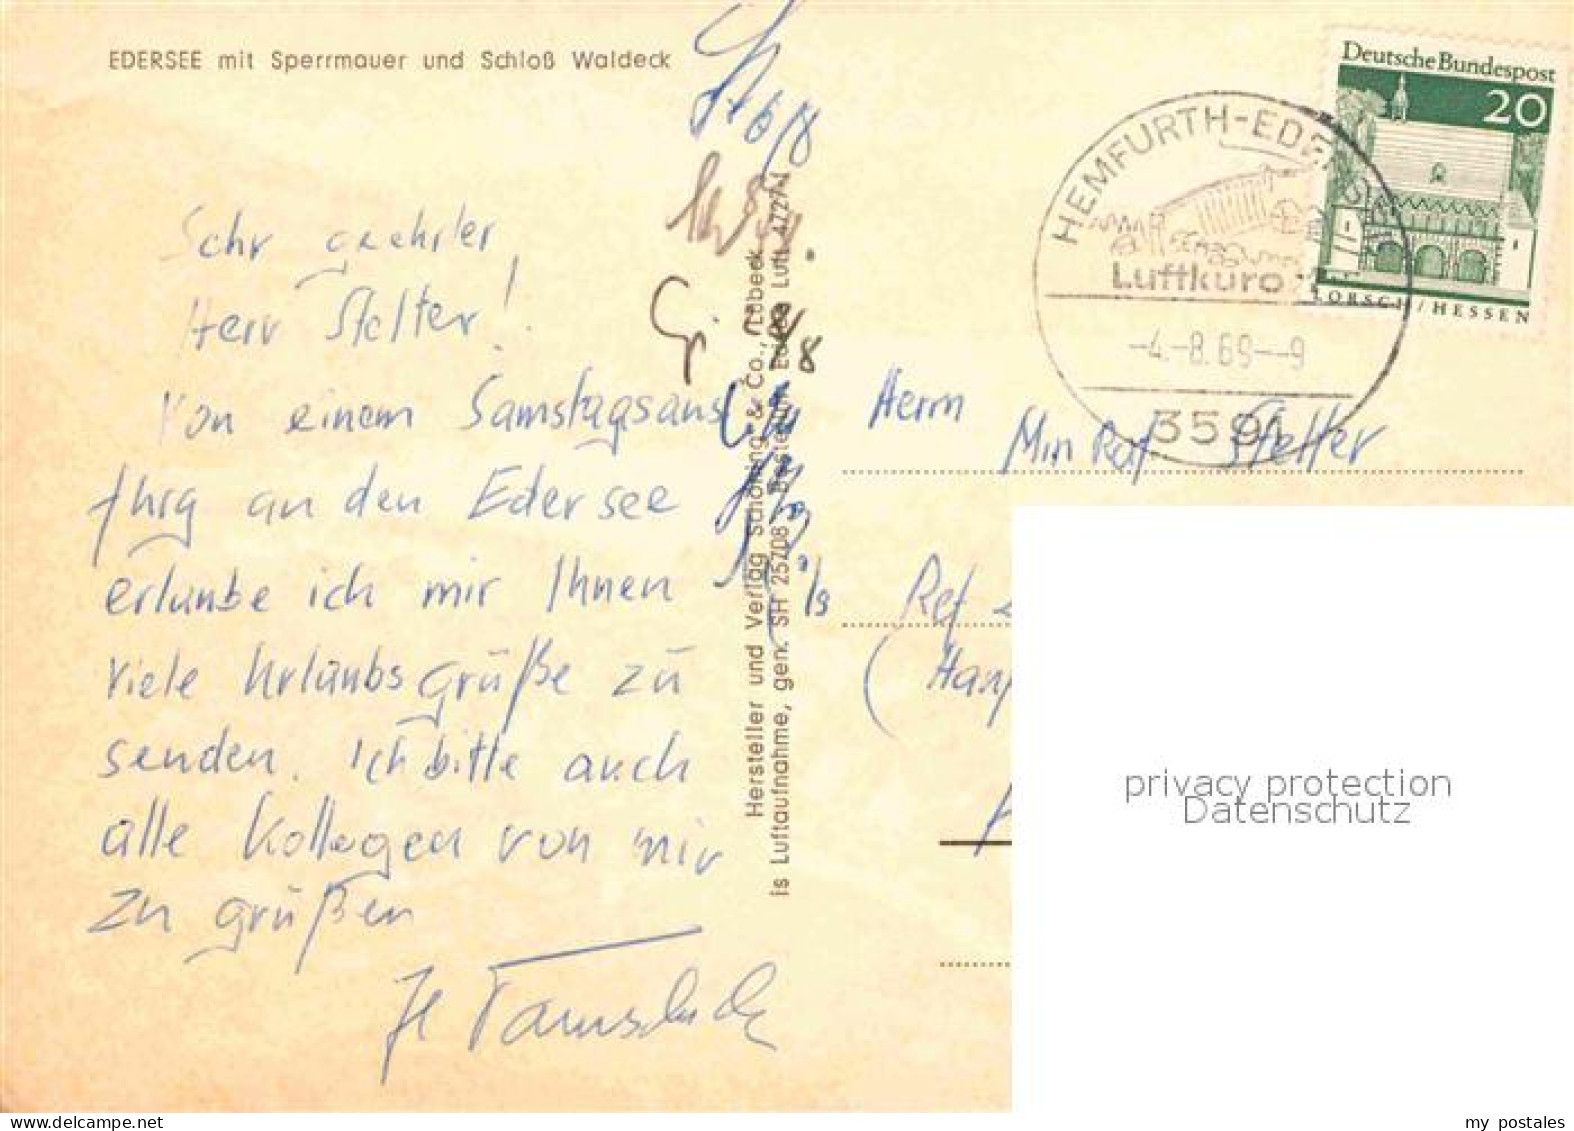 EDERSEE mit Sperrmauer und Schloß Waldeck
Sehr geehrter
Herr Stelter!
Von einem Samstagsaus
flug an den Edersee
erlaube ich mir Ihnen
viele Urlaubsgrüße zu
senden. Ich bitte auch
alle Kollegen von mir
zu grüßen
Hersteller und Verlag Schöning & Co., Lübeck
is Luftaufnahme, gen. SH 25708
Luft
Deutsche Bundespost
20
LORSCH/HESSEN
HEMFURTH-EDERSEE
Luftkuro
-4.-8.69--9
3591
Herrn
Min Rat Stelter
Ref
privacy protection
Datenschutz
my postales